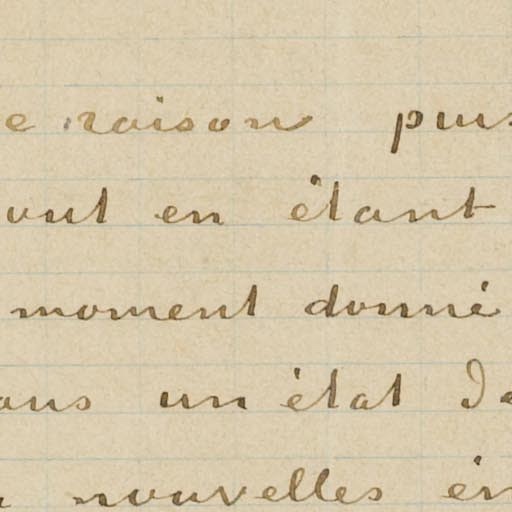 e raison puis
out en étant
moment donné
ans un état de
nouvelles én